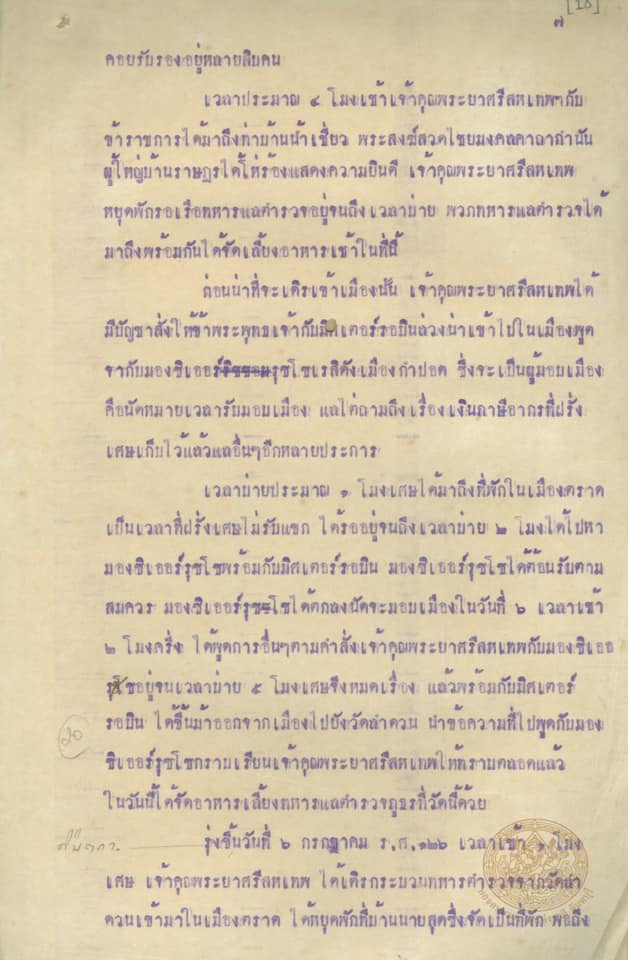 [20]
๗
คอยรับรองอยู่หลายสิบคน
เวลาประมาณ ๔ โมงเช้าเจ้าคุณพระยาศรีสหเทพฯกับ
ข้าราชการได้มาถึงท่าบ้านน้ำเชี่ยว พระสงฆ์สวดไชยมงคลคาถากำนัน
ผู้ใหญ่บ้านราษฎรได้โห่ร้องแสดงความยินดี เจ้าคุณพระยาศรีสหเทพ
หยุดพักรอเรือทหารแลตำรวจอยู่จนถึงเวลาบ่าย พวกทหารแลตำรวจได้
มาถึงพร้อมกันได้จัดเลี้ยงอาหารเช้าในที่นี้
ก่อนน่าที่จะเดิรเข้าเมืองนั้น เจ้าคุณพระยาศรีสหเทพได้
มีบัญชาสั่งให้ข้าพระพุทธเจ้ากับมิศเตอร์รอบินล่วงน่าเข้าไปในเมืองพูด
จากับมองซิเออร์รุซโซเรสิดังเมืองกำปอด ซึ่งจะเป็นผู้มอบเมือง
คือนัดหมายเวลารับมอบเมือง แลไต่ถามถึงเรื่องเงินภาษีอากรที่ฝรั่ง
เศษเก็บไว้แล้วแลอื่นๆอีกหลายประการ
เวลาบ่ายประมาณ ๑ โมงเศษได้มาถึงที่พักในเมืองตราด
เป็นเวลาที่ฝรั่งเศษไม่รับแขก ได้รออยู่จนถึงเวลาบ่าย ๒ โมงได้ไปหา
มองซิเออร์รุซโซพร้อมกับมิศเตอร์รอบิน มองซิเออร์รุซโซได้ต้อนรับตาม
สมควร มองซิเออร์รุซโซได้ตกลงนัดจะมอบเมืองในวันที่ ๖ เวลาเช้า
๒ โมงครึ่ง ได้พูดการอื่นๆตามคำสั่งเจ้าคุณพระยาศรีสหเทพกับมองซิเออ
รุโซอยู่จนเวลาบ่าย ๕ โมงเศษจึงหมดเรื่อง แล้วพร้อมกับมิศเตอร์
รอบิน ได้ขึ้นม้าออกจากเมืองไปยังวัดลำดวน นำข้อความที่ไปพูดกับมอง
๒๐
ซิเออร์รุซโซกราบเรียนเจ้าคุณพระยาศรีสหเทพให้ทราบตลอดแล้ว
ในวันนี้ได้จัดอาหารเลี้ยงทหารแลตำรวจภูธรที่วัดนี้ด้วย
รุ่งขึ้นวันที่ ๖ กรกฎาคม ร,ศ,๑๒๖ เวลาเช้า ๑ โมง
เศษ เจ้าคุณพระยาศรีสหเทพ ได้เดิรกระบวนทหารตำรวจจากวัดลำ
ดวนเข้ามาในเมืองตราด ได้หยุดพักที่บ้านนายสุดซึ่งจัดเป็นที่พัก พอถึง